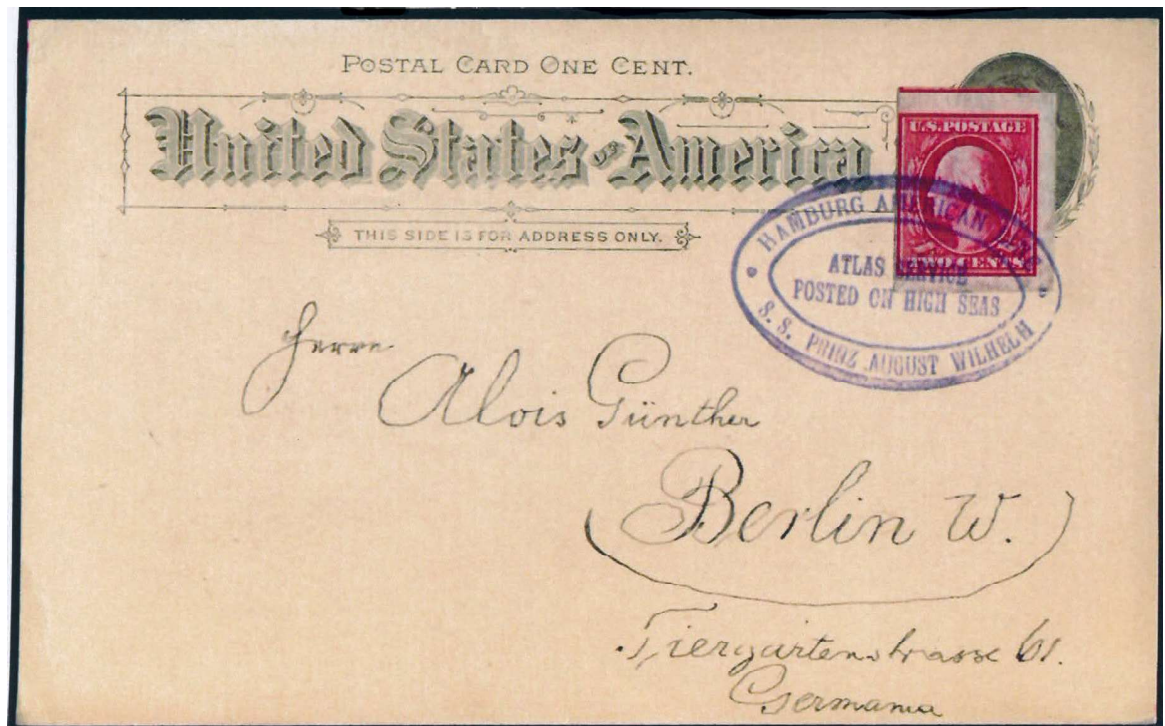 POSTAL CARD ONE CENT.
United States OF America
THIS SIDE IS FOR ADDRESS ONLY.
U.S. POSTAGE
TWO CENTS
HAMBURG AMERICAN LINE
ATLAS SERVICE
POSTED ON HIGH SEAS
S.S. PRINZ AUGUST WILHELM
Herrn
Alois Günther
Berlin W.
Tiergartenstrasse 61.
Germania